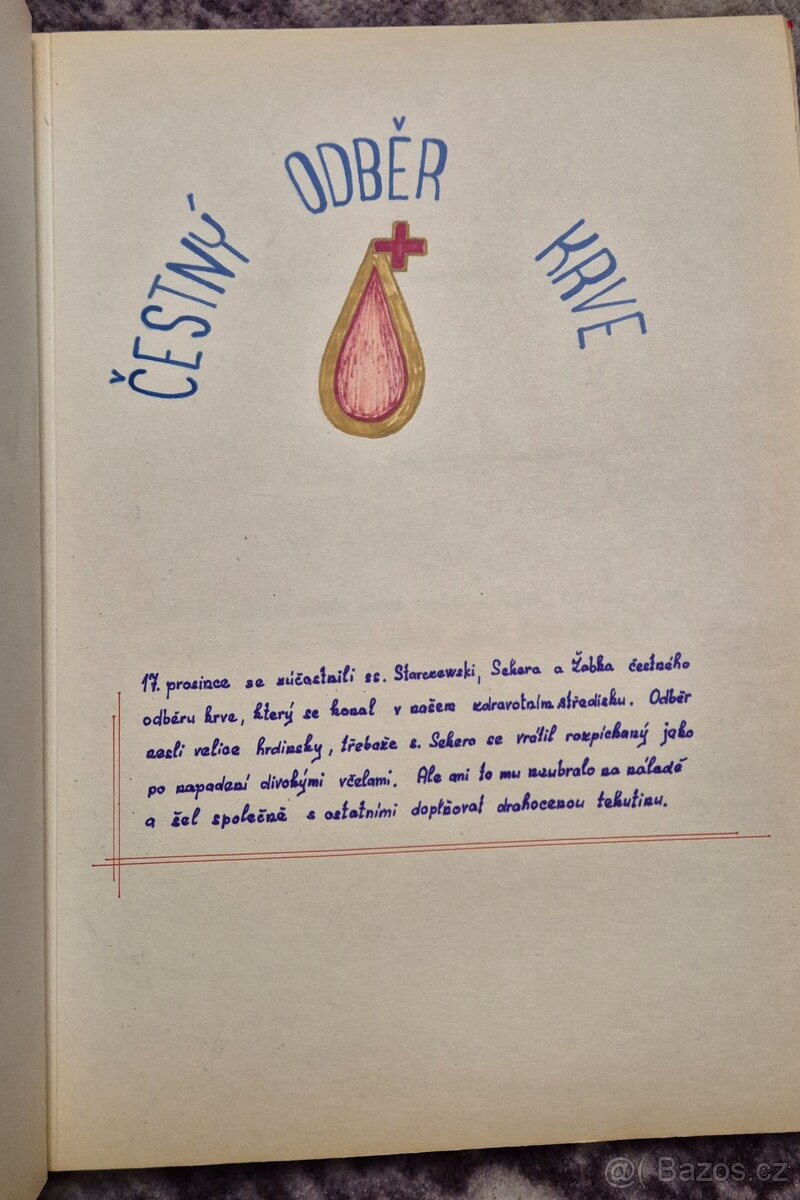 ČESTNÝ ODBĚR KRVE
17. prosince se zúčastnili ss. Starczewski, Sekera a Žabka čestného
odběru krve, který se konal v našem zdravotním středisku. Odběr
nesli velice hrdinsky, třebaže s. Sekera se vrátil rozpíchaný jako
po napadení divokými včelami. Ale ani to mu neubralo na náladě
a šel společně s ostatními doplňovat drahocenou tekutinu.
@( Bazos.cz